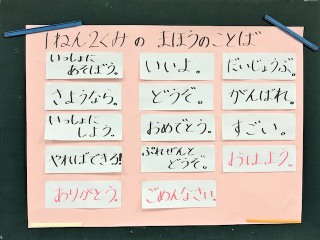 1ねん2くみの まほうのことば
いっしょに
あそばう。
いいよ。
だいじょうぶ。
さようなら。
どうぞ。
がんばれ。
いっしょに
しよう。
おめでとう。
すごい。
やればできる!
ぷれぜんと
どうぞ。
おはよう。
ありがとう。
ごめんなさい。